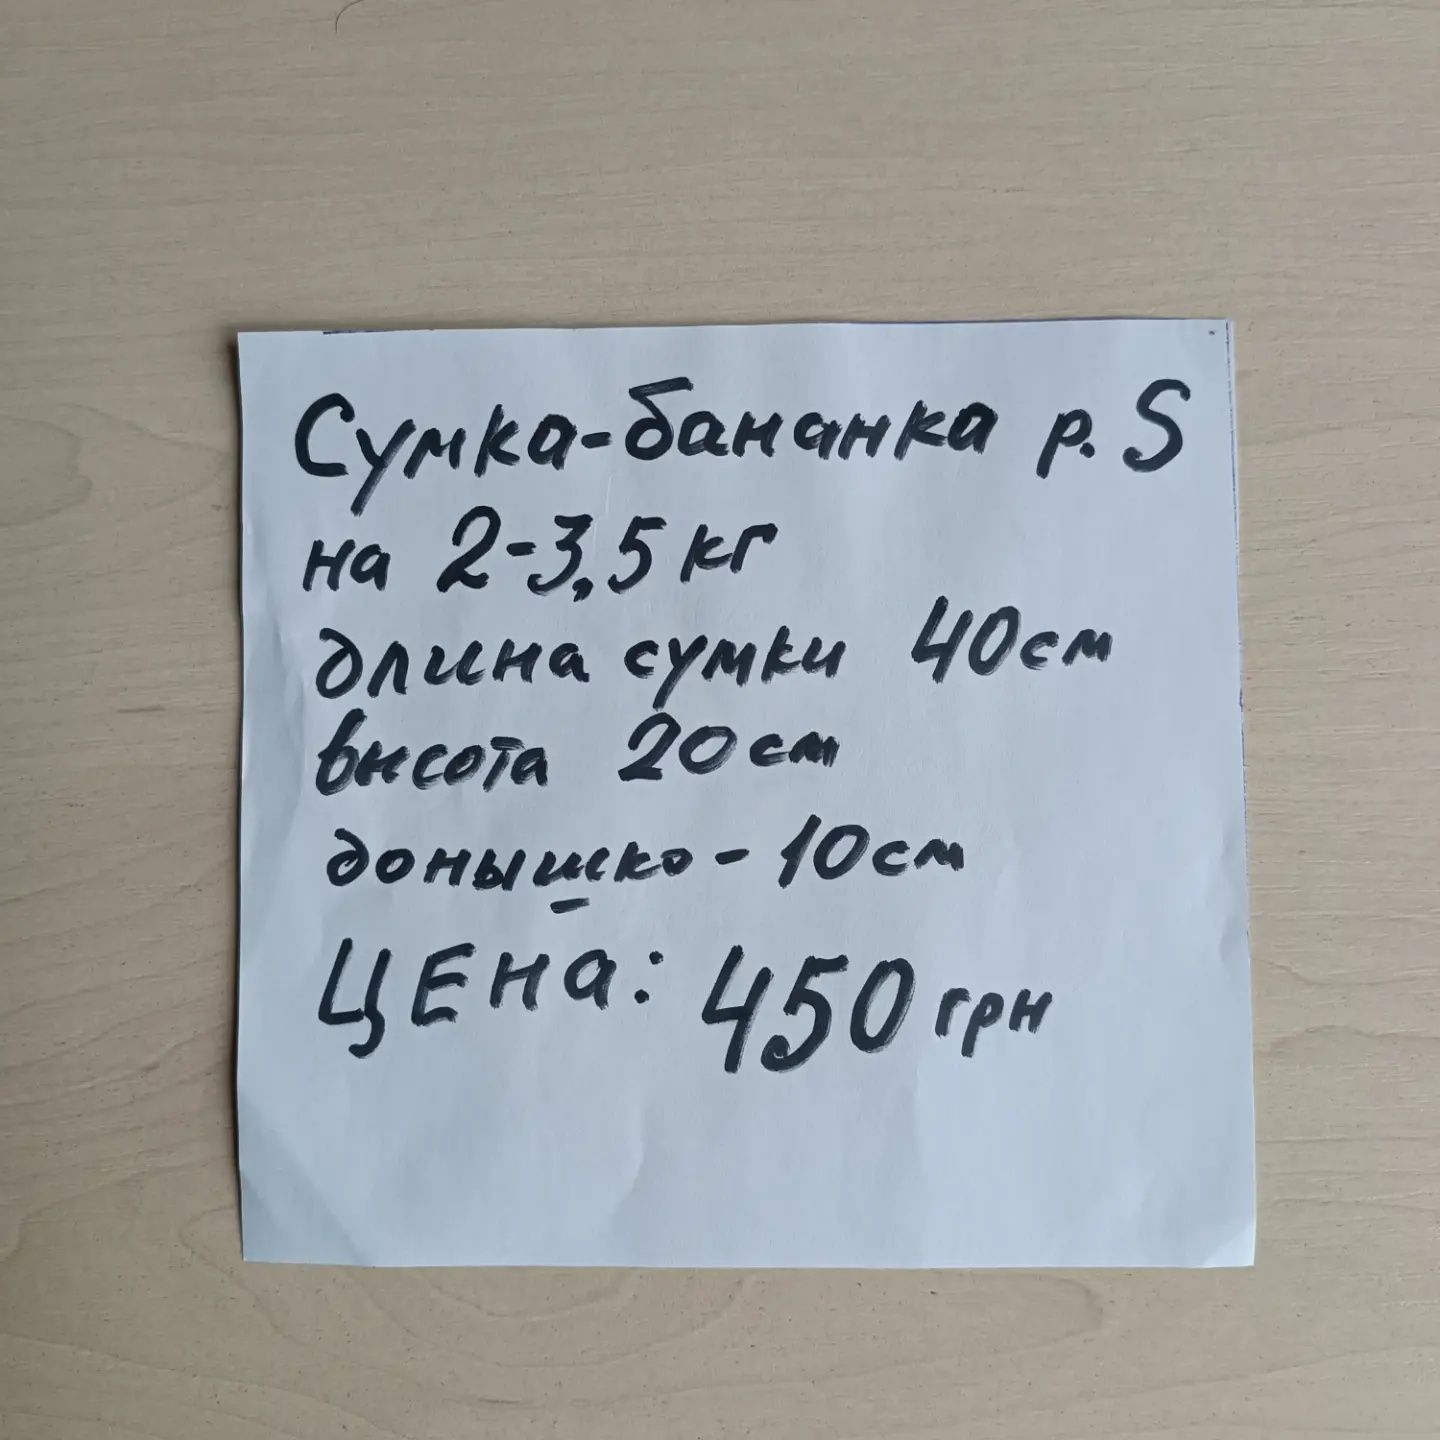 Сумка-бананка р. S
на 2-3,5 кг
длина сумки 40см
высота 20см
донышко - 10см
ЦЕНа: 450 грн